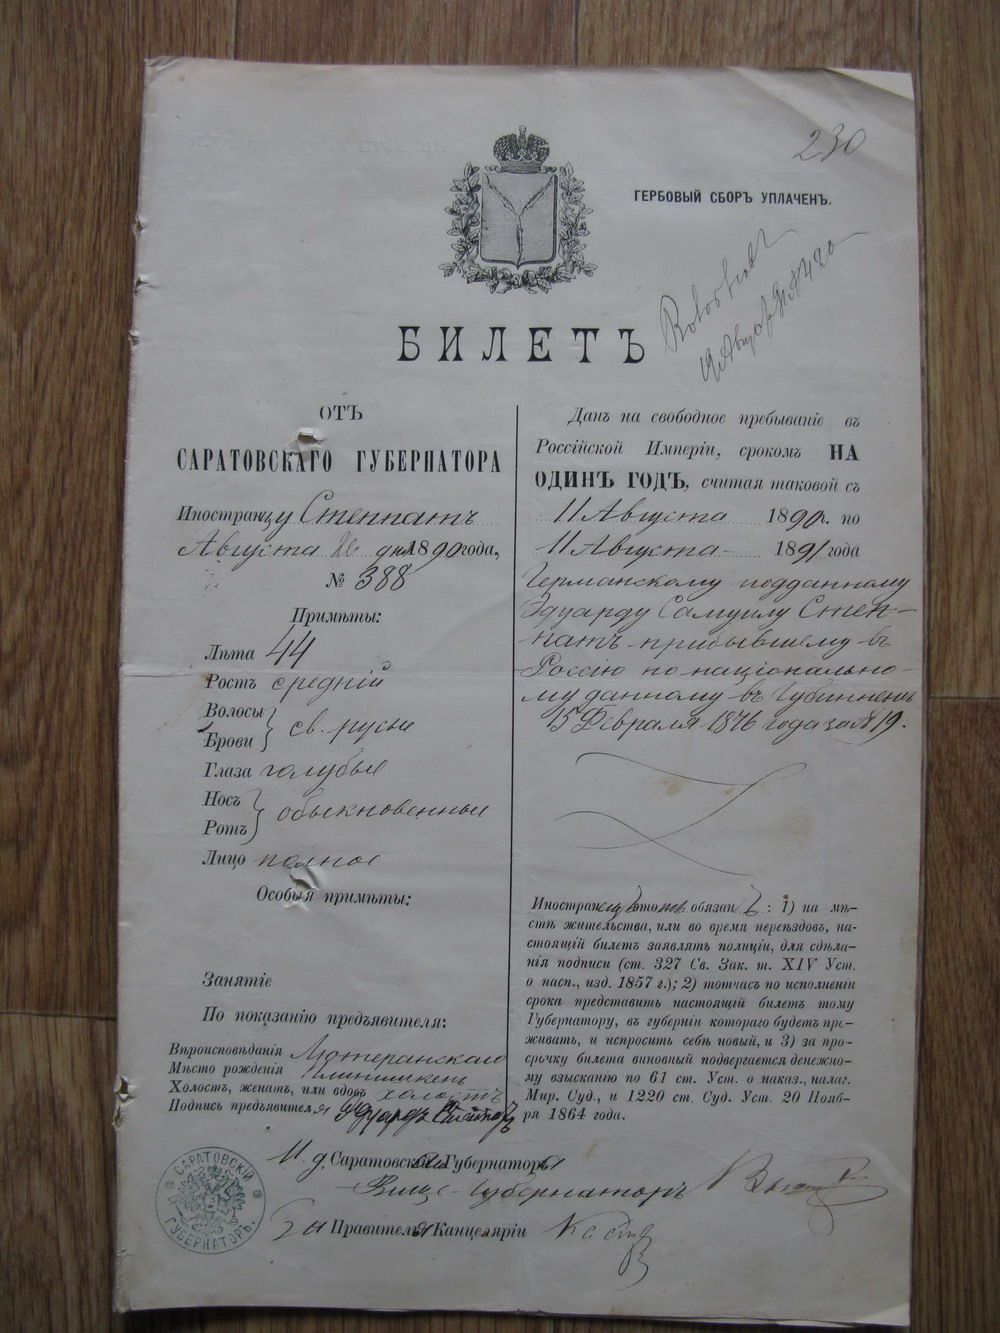 230
ГЕРБОВЫЙ СБОРЪ УПЛАЧЕНЪ.
БИЛЕТЪ
ОТЪ
САРАТОВСКАГО ГУБЕРНАТОРА
Иностранцу Степпатъ
Августа 26 дня 1890 года,
№ 388
Примѣты:
Лѣта 44
Ростъ средній
Волосы
Брови } св. русые
Глаза голубые
Носъ
Ротъ } обыкновенные
Лицо полное
Особыя примѣты:
Занятіе
По показанію предъявителя:
Вѣроисповѣданія Лютеранскаго
Мѣсто рожденія
Холостъ, женатъ, или вдовъ холостъ
Подпись предъявителя Эдуардъ Степпатъ
Данъ на свободное пребываніе въ
Россійской Имперіи, срокомъ НА
ОДИНЪ ГОДЪ, считая таковой съ
11 Августа 1890 г. по
11 Августа 1891 года
Германскому подданному
Эдуарду Самуилу Степ-
патъ прибывшему въ
Россію по національно-
му данному въ Губинненъ
15 Февраля 1876 года за № 19.
Иностранецъ этотъ обязанъ: 1) на мѣ-
стѣ жительства, или во время переѣздовъ, на-
стоящій билетъ заявлять полиціи, для сдѣла-
нія подписи (ст. 327 Св. Зак. т. XIV Уст.
о пасп., изд. 1857 г.); 2) тотчасъ по исполненіи
срока представить настоящій билетъ тому
Губернатору, въ губерніи котораго будетъ про-
живать, и испросить себѣ новый, и 3) за про-
срочку билета виновный подвергается денежно-
му взысканію по 61 ст. Уст. о наказ., налаг.
Мир. Суд., и 1220 ст. Суд. Уст. 20 Нояб-
ря 1864 года.
И. д. Саратовскаго Губернатора
Вице-Губернаторъ
За Правителя Канцеляріи
САРАТОВСКІЙ ГУБЕРНАТОРЪ.